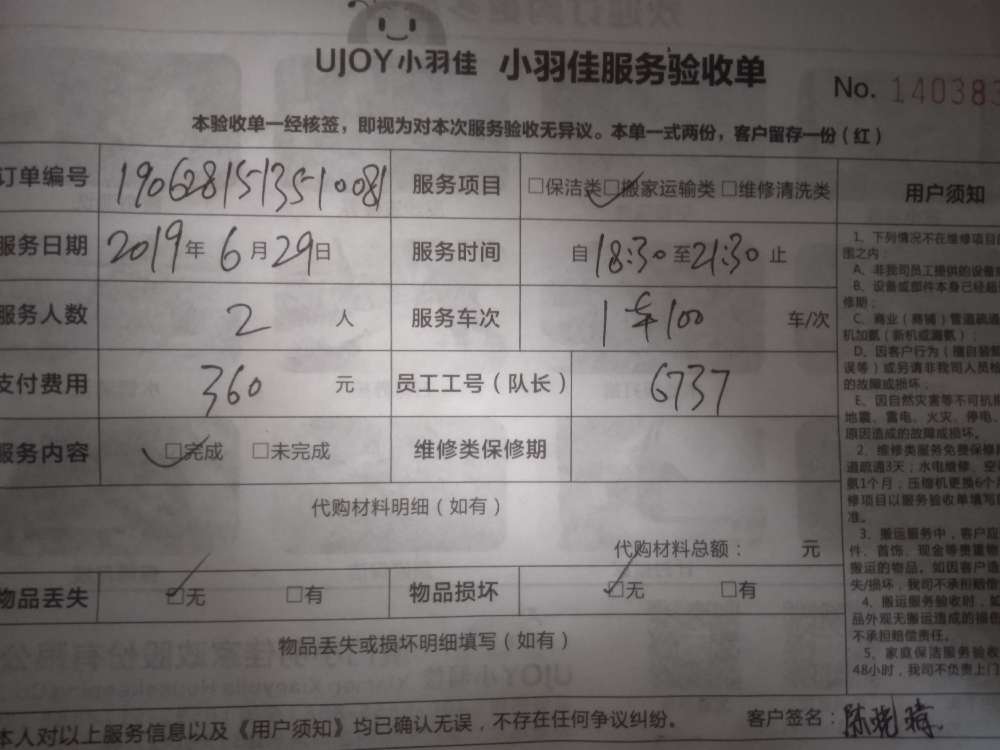 UJOY小羽佳 小羽佳服务验收单
No. 14038
本验收单一经核签，即视为对本次服务验收无异议。本单一式两份，客户留存一份（红）
订单编号 190628151351008 服务项目 □保洁类□搬家运输类 □维修清洗类
服务日期 2019年6月29日 服务时间 自18:30至21:30止
服务人数 2 人 服务车次 1车100 车/次
支付费用 360 元 员工工号（队长） 6737
服务内容 □完成 □未完成 维修类保修期
代购材料明细（如有）
代购材料总额： 元
物品丢失 □无 □有 物品损坏 □无 □有
物品丢失或损坏明细填写（如有）
本人对以上服务信息以及《用户须知》均已确认无误，不存在任何争议纠纷。 客户签名：陈晓
用户须知
1、下列情况不在维修项目
围之内：
A、非我司员工提供的设备
B、设备或部件本身已经超
修期；
C、商业（商铺）管道疏通
机加氨（新机或漏氨）；
D、因客户行为（擅自装
误等）或另请非我司人员检
的故障或损坏；
E、因自然灾害等不可抗
地震、雷电、火灾、停电、
原因造成的故障或损坏。
2、维修类服务免费保修
道疏通3天；水电维修、空
氨1个月，压缩机更换6个
修项目以服务验收单填写
准。
3、搬运服务中，客户应
件、首饰、现金等贵重物
搬运的物品。如因客户造
失/损坏，我司不承担赔偿
4、搬运服务验收时，如
品外观无搬运造成的损
不承担赔偿责任。
5、家庭保洁服务验收
48小时，我司不负责上门